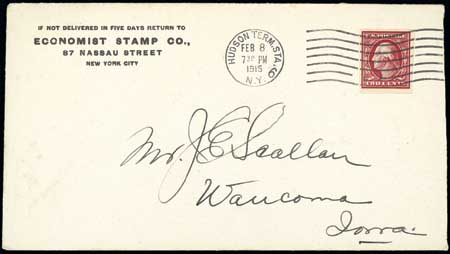 IF NOT DELIVERED IN FIVE DAYS RETURN TO
ECONOMIST STAMP CO.,
87 NASSAU STREET
NEW YORK CITY
HUDSON TERM. STA.
FEB 8
7 30 PM
1915
N.Y.
TWO CENTS
Mr. J E Scallan
Waucoma
Iowa.